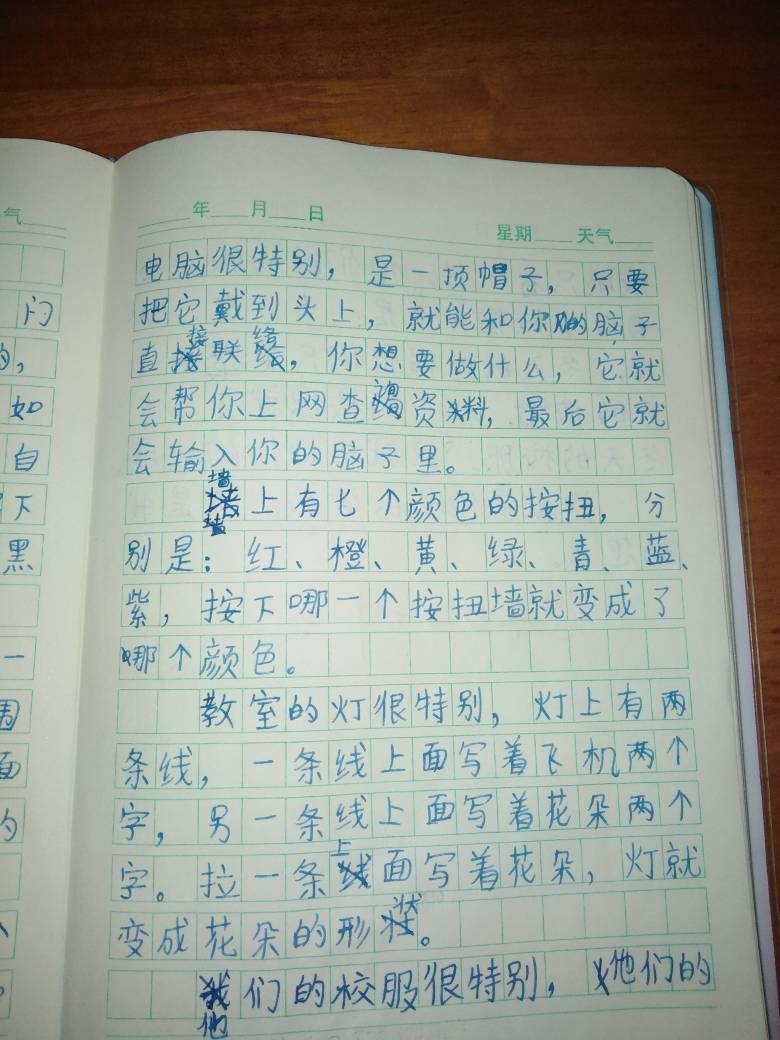 气
年 月 日
星期 天气
电脑很特别，是一顶帽子，只要
把它戴到头上，就能和你的脑子
直接联络，你想要做什么，它就
会帮你上网查询资料，最后它就
会输入你的脑子里。
墙上有七个颜色的按扭，分
别是：红、橙、黄、绿、青、蓝、
紫，按下哪一个按扭墙就变成了
哪个颜色。
教室的灯很特别，灯上有两
条线，一条线上面写着飞机两个
字，另一条线上面写着花朵两个
字。拉一条上面写着花朵，灯就
变成花朵的形状。
他们的校服很特别，他们的
门
的，
如
自
下
黑
一
围
面
的